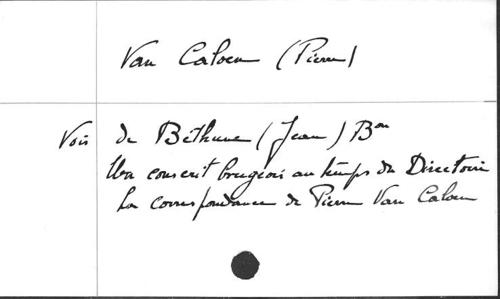 Van Caloen (Pierre)
Vois de Béthune (Jean) Bon
Un conscrit brugeois au temps du Directoire
La correspondance de Pierre Van Caloen